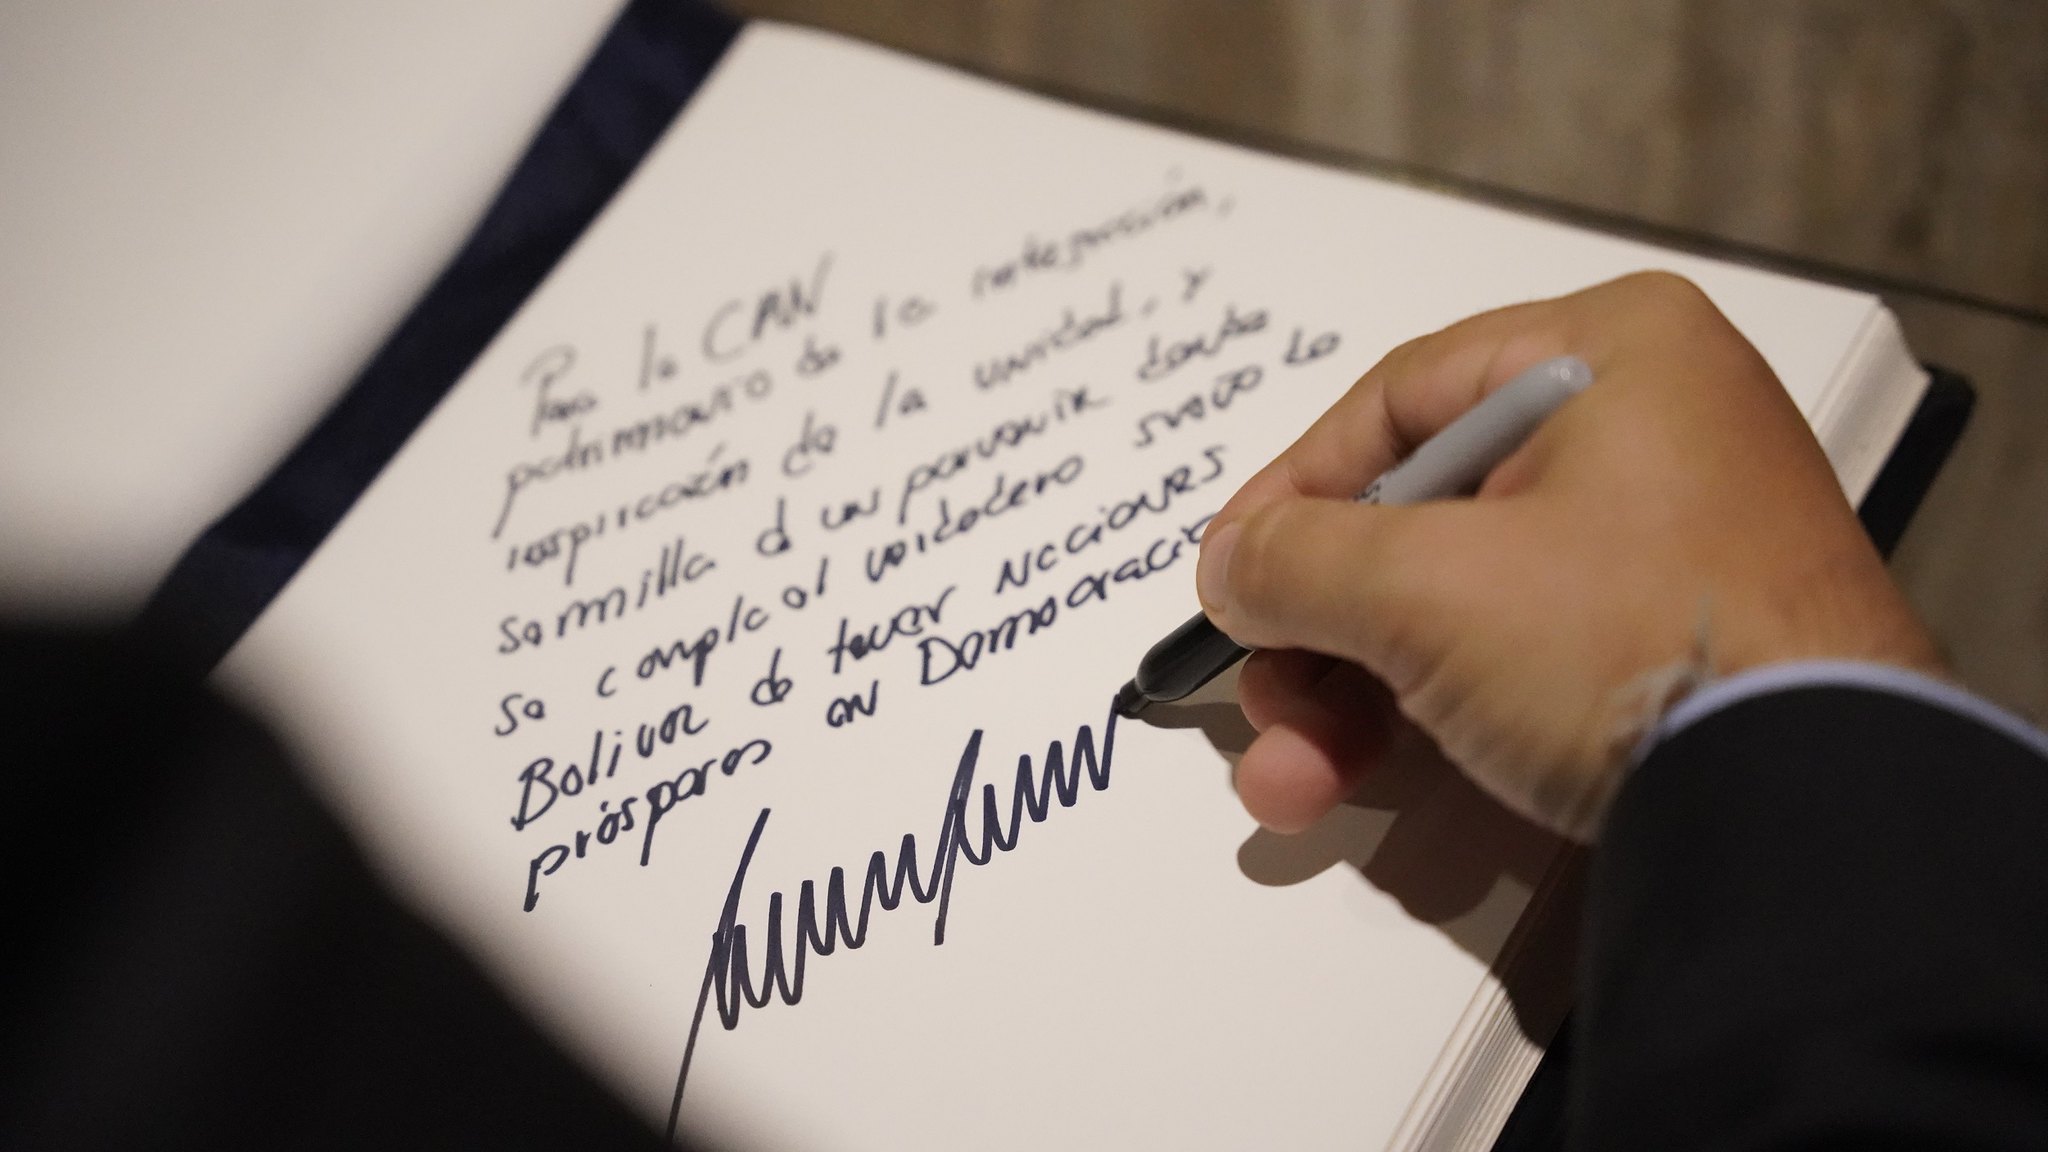 Para la CAN
patrimonio de la integración,
inspiración de la unidad, y
semilla d un porvenir donde
se cumpla el verdadero sueño de
Bolivar de tener Naciones
prósperas en Democracia